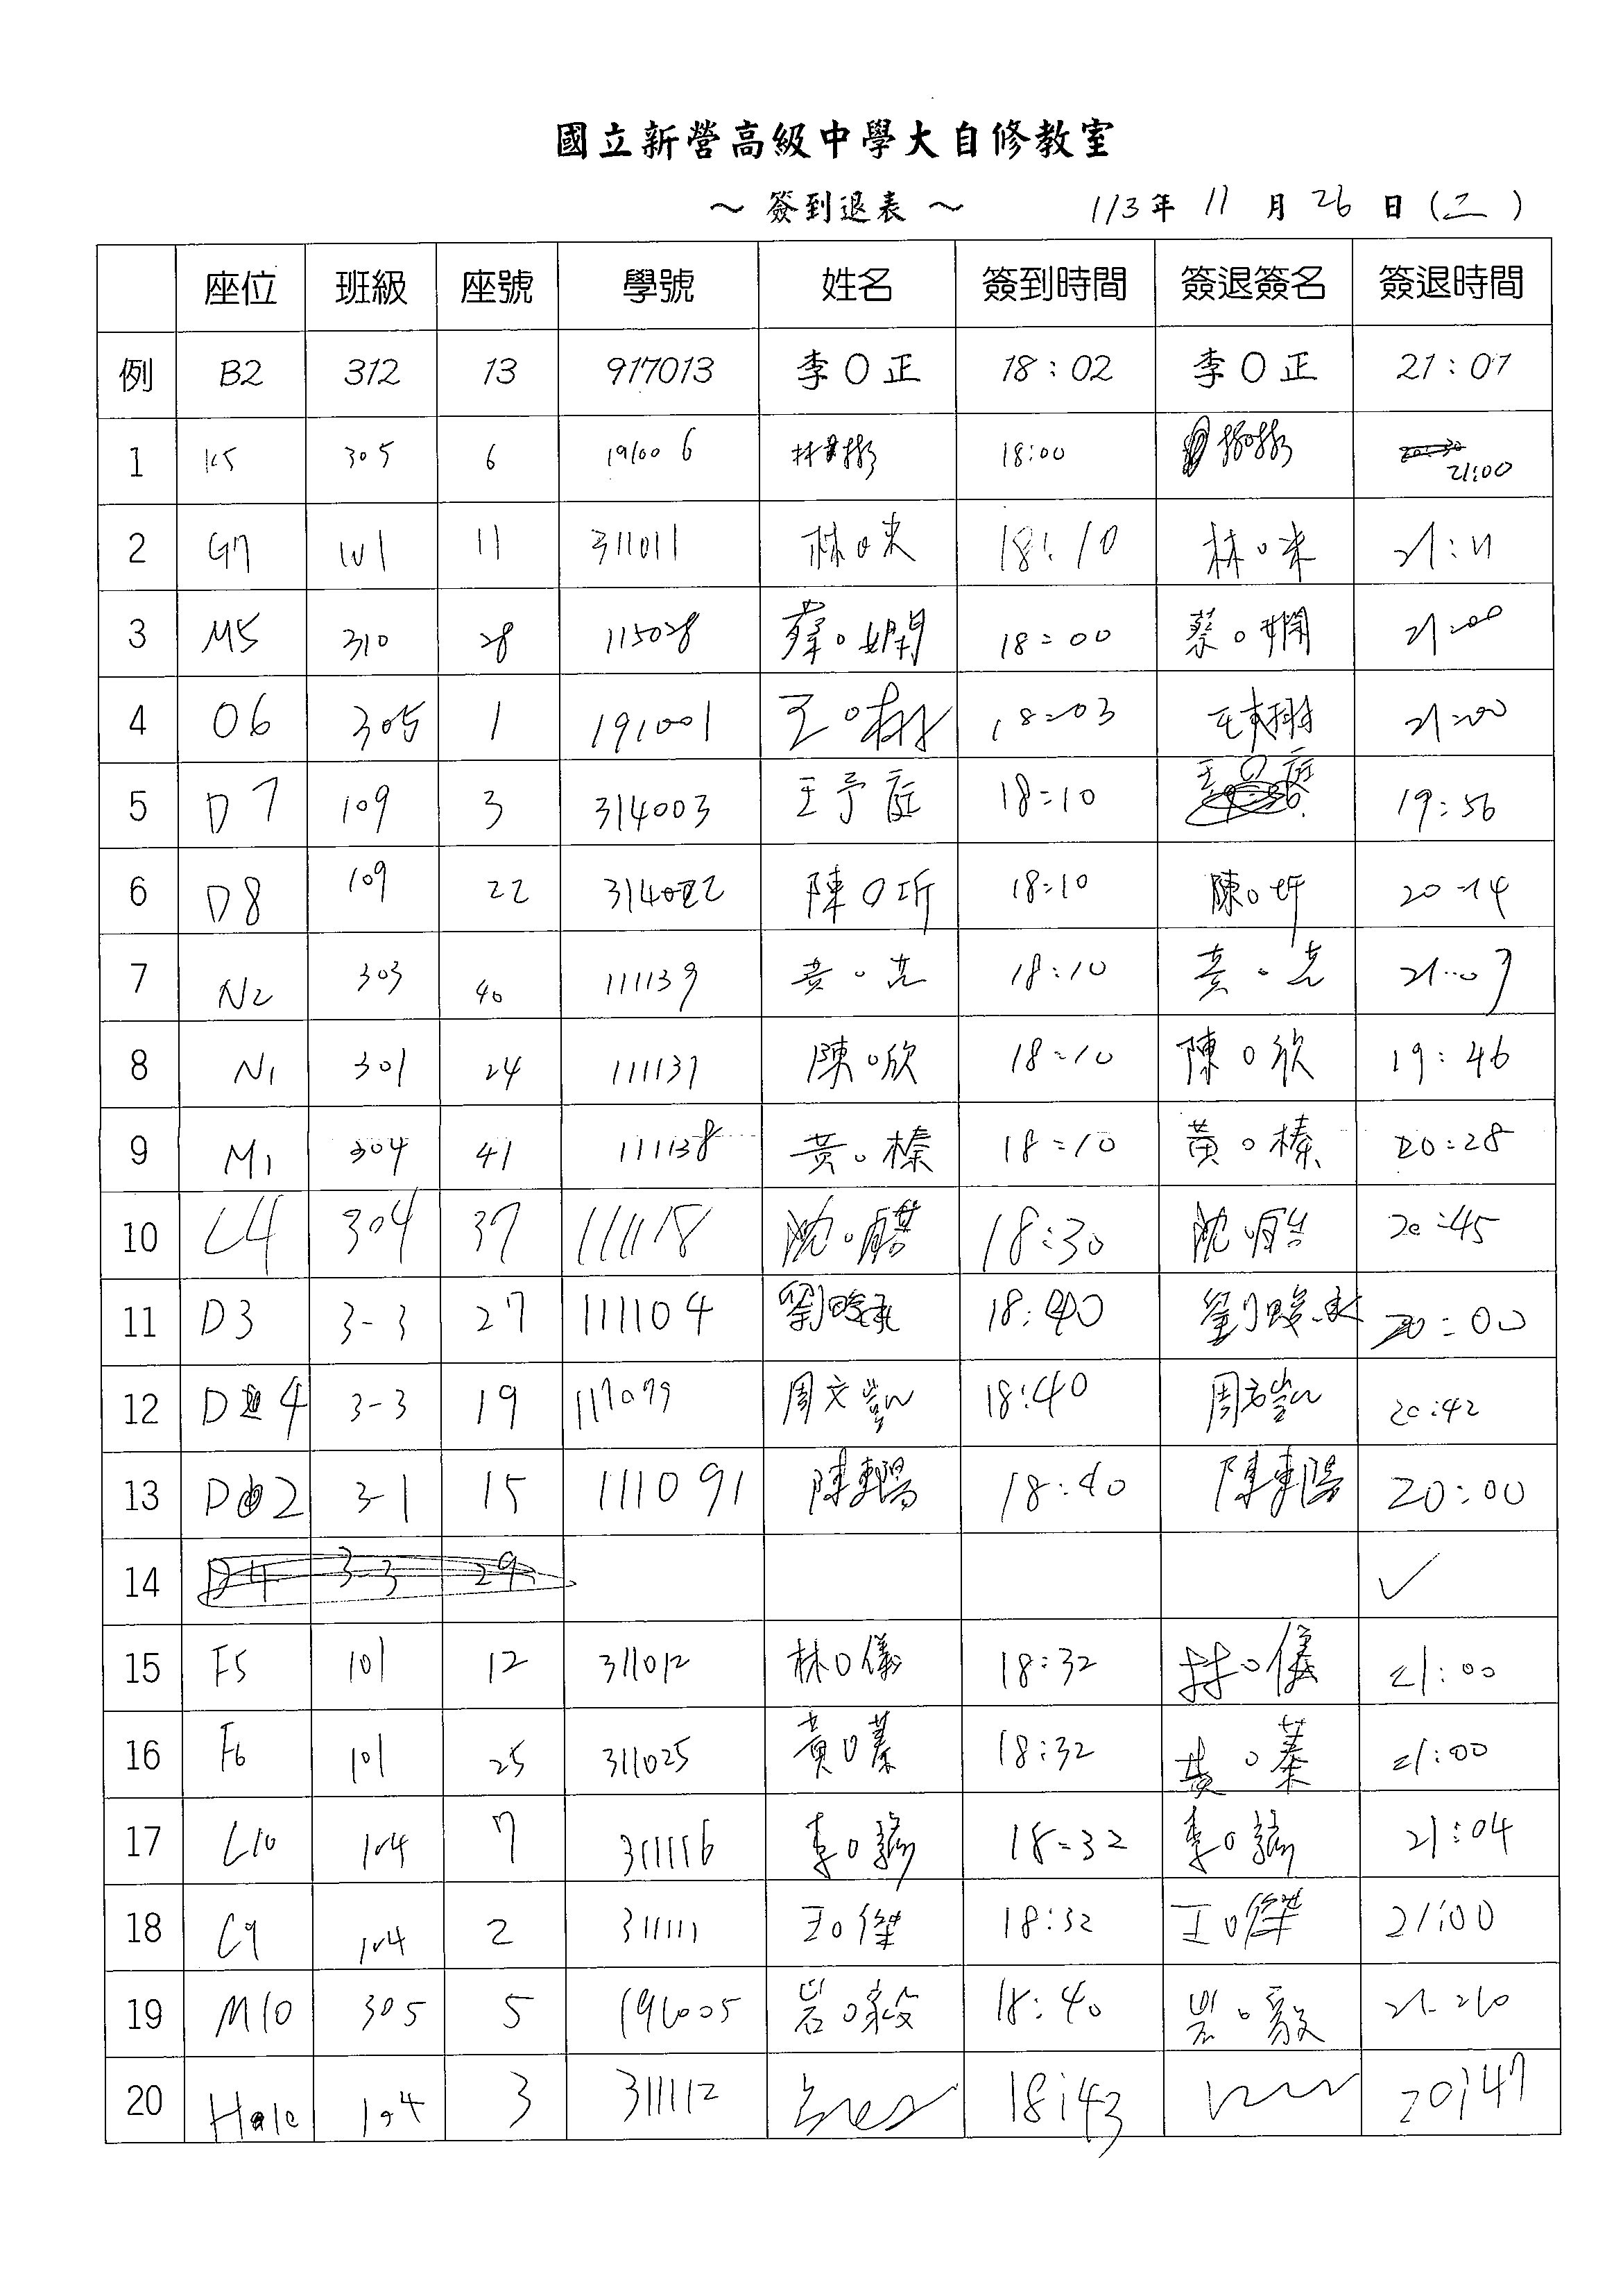 國立新營高級中學大自修教室
～ 簽到退表 ～ 113年 11 月 26 日 (二)
座位 班級 座號 學號 姓名 簽到時間 簽退簽名 簽退時間
例 B2 312 13 917013 李O正 18:02 李O正 21:01
1 K5 305 6 191006 18:00 21:00
2 G7 101 11 311011 林O 18:10 林O 21:11
3 M5 310 28 115028 蔡O嫻 18:00 蔡O嫻 21:00
4 O6 305 1 191001 王O樹 18:03 21:00
5 D7 109 3 314003 王予庭 18:10 王O庭 19:56
6 D8 109 22 314022 陳O圻 18:10 陳O圻 20:14
7 N2 303 40 111139 黃O 18:10 黃O 21:09
8 N1 301 24 111137 陳O欣 18:10 陳O欣 19:46
9 M1 304 41 111138 黃O榛 18:10 黃O榛 20:28
10 L4 304 37 111118 沈O 18:30 沈 20:45
11 D3 3-3 27 111104 劉 18:40 劉 20:00
12 D4 3-3 19 117079 周文凱 18:40 周文凱 20:42
13 D2 3-1 15 111091 陳東陽 18:40 陳東陽 20:00
14 ✓
15 F5 101 12 311012 林O儀 18:32 林O儀 21:00
16 F6 101 25 311025 黃O蓁 18:32 黃O蓁 21:00
17 L10 104 7 311116 李O 18:32 李O 21:04
18 C9 104 2 311111 王O傑 18:32 王O傑 21:00
19 M10 305 5 191005 岩O毅 18:40 岩O毅
20 104 3 311112 18:43 20:47